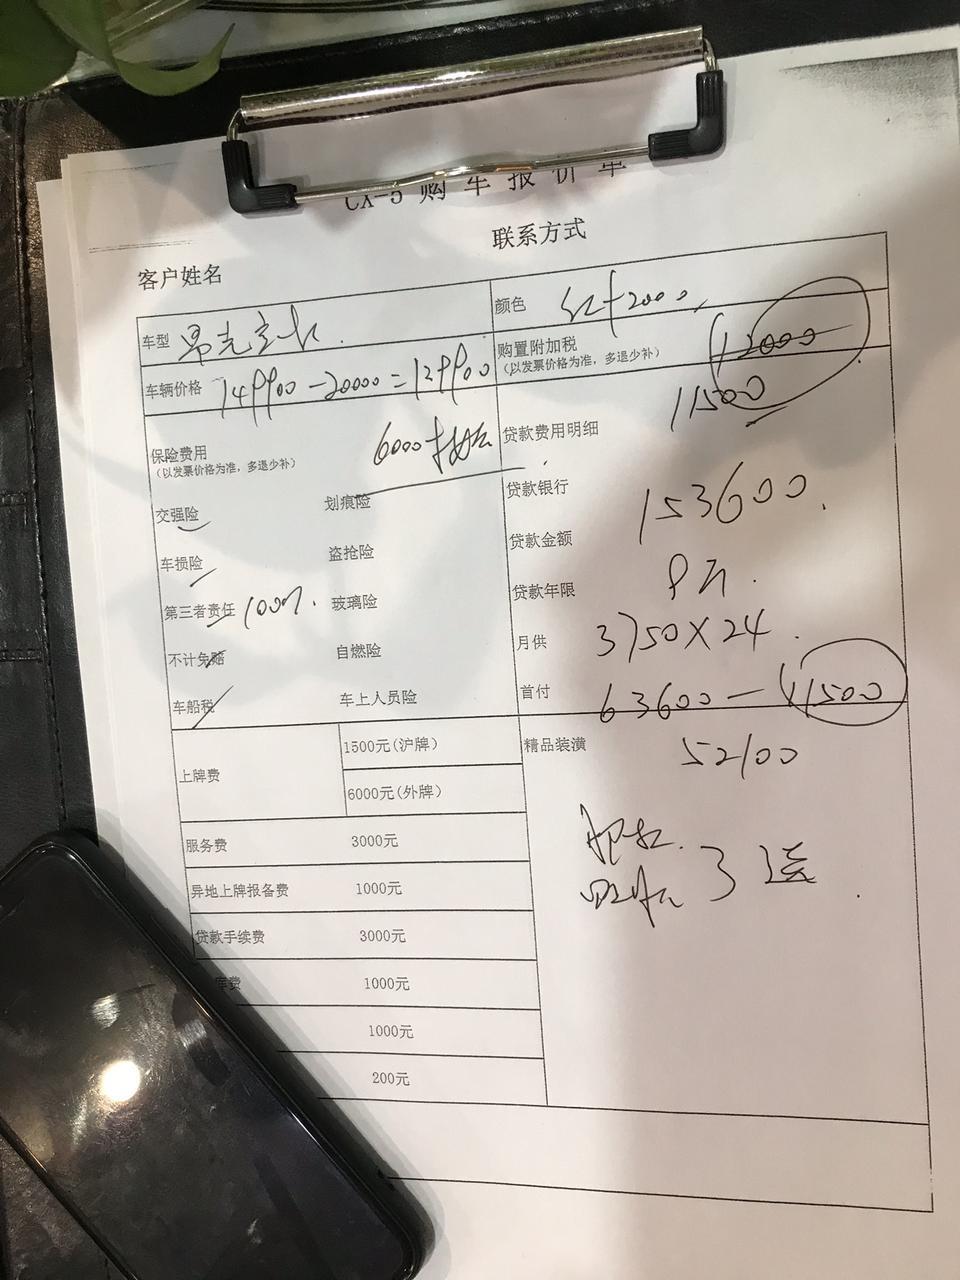 CX-5 购车报价单
联系方式
客户姓名
车型 昂克赛拉
颜色 红+2000
车辆价格 149900-20000=129900
购置附加税 12000
(以发票价格为准，多退少补)
11500
保险费用 6000
(以发票价格为准，多退少补)
贷款费用明细
交强险 划痕险
贷款银行
153600
车损险 盗抢险
贷款金额
第三者责任 100万 玻璃险
贷款年限
不计免赔 自燃险
月供 3750×24
车船税 车上人员险
首付 63600-11500
52100
上牌费 1500元(沪牌)
6000元(外牌)
精品装潢
服务费 3000元
3 送
异地上牌报备费 1000元
贷款手续费 3000元
库费 1000元
1000元
200元